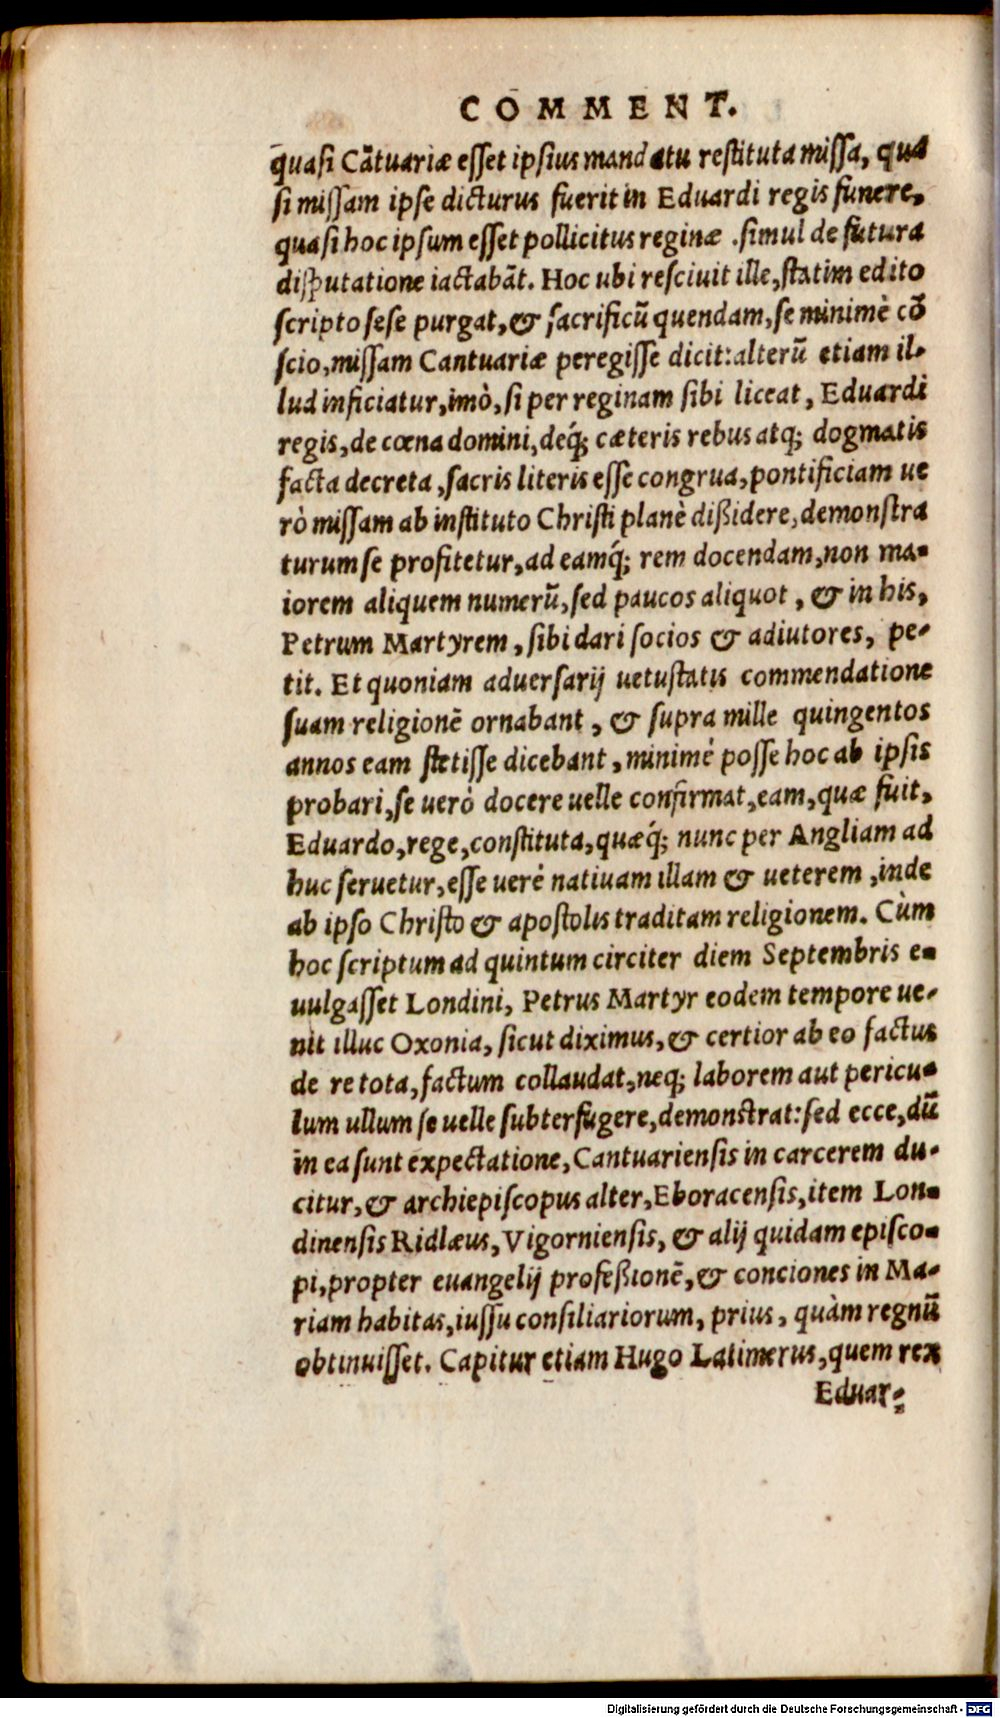 COMMENT.
quasi Cãtuariæ esset ipsius mandatu restituta missa, qua
si missam ipse dicturus fuerit in Eduardi regis funere,
quasi hoc ipsum esset pollicitus reginæ .simul de futura
disputatione iactabãt. Hoc ubi resciuit ille, statim edito
scripto sese purgat, & sacrificũ quendam, se minimè cõ
scio, missam Cantuariæ peregisse dicit: alterũ etiam il-
lud inficiatur, imò, si per reginam sibi liceat, Eduardi
regis, de cœna domini, deq́; cæteris rebus atq; dogmatis
facta decreta, sacris literis esse congrua, pontificiam ue
rò missam ab instituto Christi planè dißidere, demonstra
turum se profitetur, ad eamq́; rem docendam, non ma-
iorem aliquem numerũ, sed paucos aliquot, & in his,
Petrum Martyrem, sibi dari socios & adiutores, pe-
tit. Et quoniam aduersarij uetustatis commendatione
suam religionẽ ornabant, & supra mille quingentos
annos eam stetisse dicebant, minimè posse hoc ab ipsis
probari, se uerò docere uelle confirmat, eam, quæ fuit,
Eduardo, rege, constituta, quæq́; nunc per Angliam ad
huc seruetur, esse uerè natiuam illam & ueterem, inde
ab ipso Christo & apostolis traditam religionem. Cùm
hoc scriptum ad quintum circiter diem Septembris e-
uulgasset Londini, Petrus Martyr eodem tempore ue-
nit illuc Oxonia, sicut diximus, & certior ab eo factus
de re tota, factum collaudat, neq; laborem aut pericu-
lum ullum se uelle subterfugere, demonstrat: sed ecce, dũ
in ea sunt expectatione, Cantuariensis in carcerem du-
citur, & archiepiscopus alter, Eboracensis, item Lon-
dinensis Ridlæus, Vigorniensis, & alij quidam episco-
pi, propter euangelij profeßionẽ, & conciones in Ma-
riam habitas, iussu consiliariorum, prius, quàm regnũ
obtinuisset. Capitur etiam Hugo Latimerus, quem rex
Eduar-
Digitalisierung gefördert durch die Deutsche Forschungsgemeinschaft - DFG